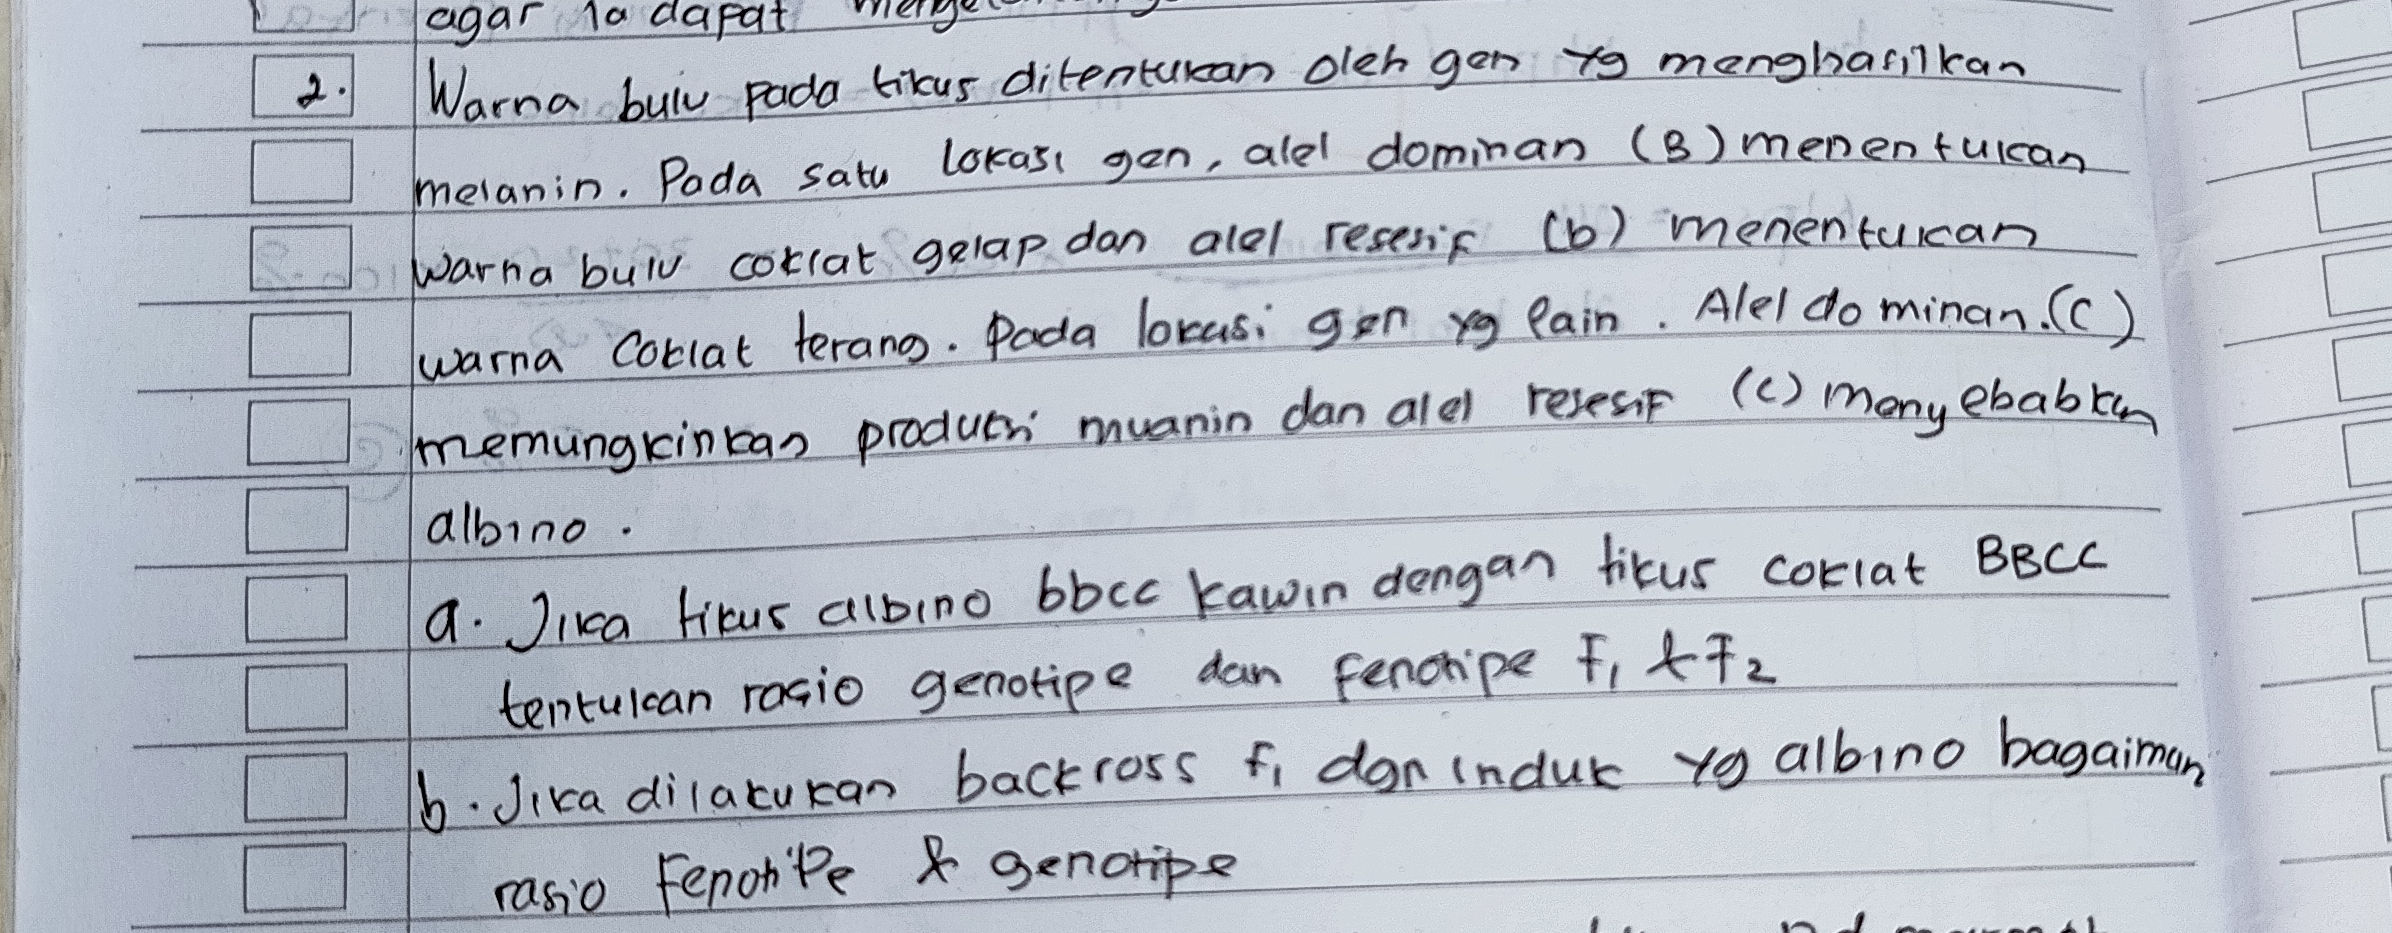 agar ia dapat
2. Warna bulu pada tikus ditentukan oleh gen yg menghasilkan
melanin. Pada satu lokasi gen, alel dominan (B) menentukan
warna bulu coklat gelap dan alel resesif (b) menentukan
warna coklat terang. Pada lokasi gen yg lain. Alel dominan (C)
memungkinkan produksi muanin dan alel resesif (c) menyebabkan
albino.
a. Jika tikus albino bbcc kawin dengan tikus coklat BBCC
tentukan rasio genotipe dan fenotipe F1 & F2
b. Jika dilakukan backross f1 dgn induk yg albino bagaiman
rasio Fenotipe & genotipe